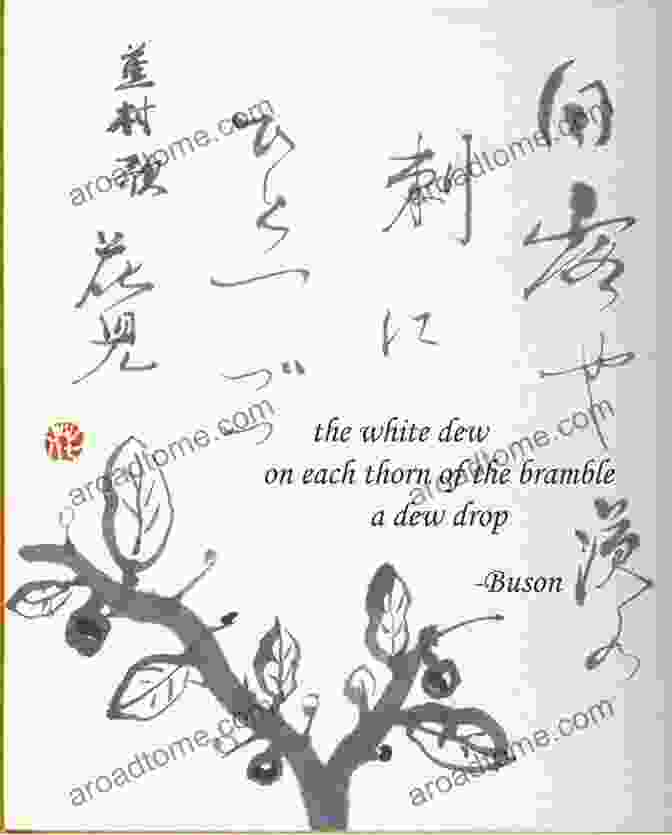 白露や
刺に
蕪村歌 花見
the white dew
on each thorn of the bramble
a dew drop
-Buson
aroadtome.com
aroadtome.com
aroadtome.com
aroadtome.com
aroadtome.com
aroadtome.com